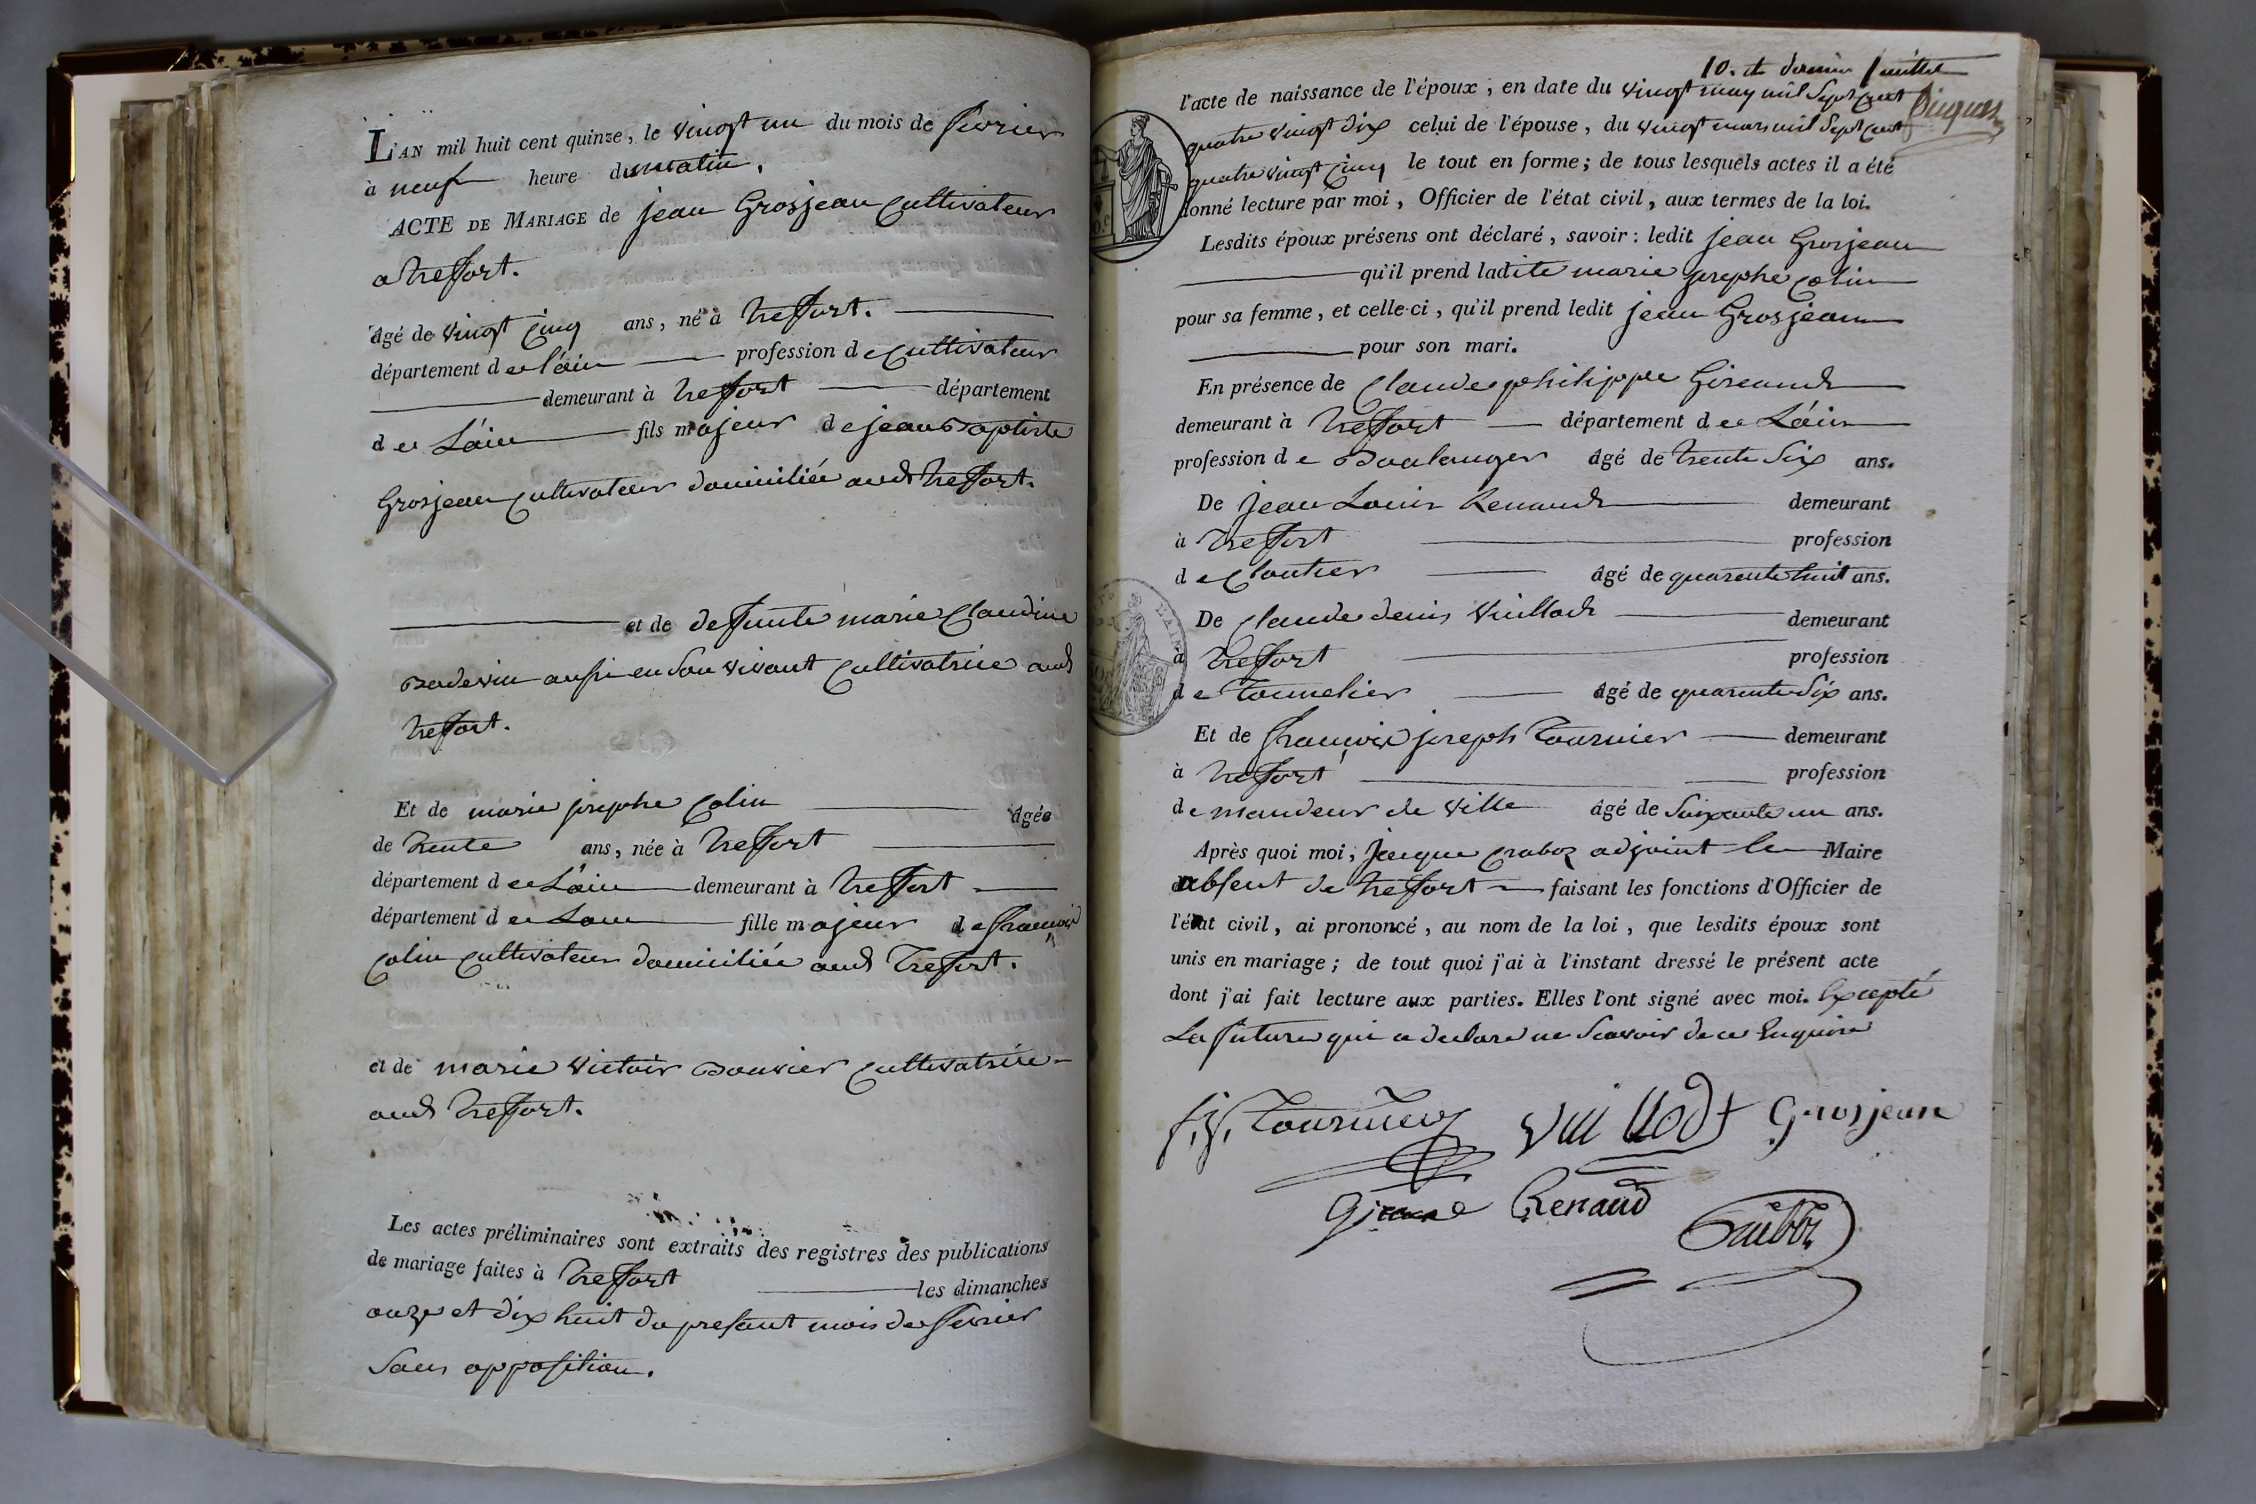 L'AN mil huit cent quinze, le vingt un du mois de fevrier
à neuf heure du matin.
ACTE DE MARIAGE de jean Grosjean cultivateur
a treffort.
âgé de vingt cinq ans, né à treffort.
département de l'ain profession de cultivateur
demeurant à treffort département
de L'ain fils majeur de jean Baptiste
Grosjean cultivateur domicilié aud treffort.
et de deffunte marie Claudine
aussi en son vivant cultivatrice aud
treffort.
Et de marie josephe Colin âgée
de trente ans, née à treffort
département de L'ain demeurant à treffort
département de Lain fille majeur de francois
Colin cultivateur domicilié aud treffort.
et de marie victoir Bouvier cultivatrice
aud treffort.
Les actes préliminaires sont extraits des registres des publications
de mariage faites à treffort les dimanches
onze et dix huit du present mois de fevrier
Sans opposition.
10. et dernier feuillet
l'acte de naissance de l'époux, en date du vingt may mil Sept cent
quatre vingt dix celui de l'épouse, du vingt mars mil Sept cent
quatre vingt cinq le tout en forme; de tous lesquels actes il a été
donné lecture par moi, Officier de l'état civil, aux termes de la loi.
Lesdits époux présens ont déclaré, savoir: ledit jean Grosjean
qu'il prend ladite marie josephe Colin
pour sa femme, et celle-ci, qu'il prend ledit jean Grosjean
pour son mari.
En présence de Claude philippe Giraud
demeurant à treffort département de L'ain
profession de Boulanger âgé de trente Six ans.
De jean Louis Renaud demeurant
à treffort profession
de Cloutier âgé de quarente huit ans.
De Claude denis Vuillod demeurant
à treffort profession
de tonnelier âgé de quarente Six ans.
Et de francois joseph tournier demeurant
à treffort profession
de mandeur de ville âgé de Soixante un ans.
Après quoi moi, Jacque adjoint le Maire
absent de treffort faisant les fonctions d'Officier de
l'état civil, ai prononcé, au nom de la loi, que lesdits époux sont
unis en mariage; de tout quoi j'ai à l'instant dressé le présent acte
dont j'ai fait lecture aux parties. Elles l'ont signé avec moi. Excepté
La future qui a declare ne Scavoir de ce Enquise
f. j. Tournier Vuillodt Grosjean
Renaud